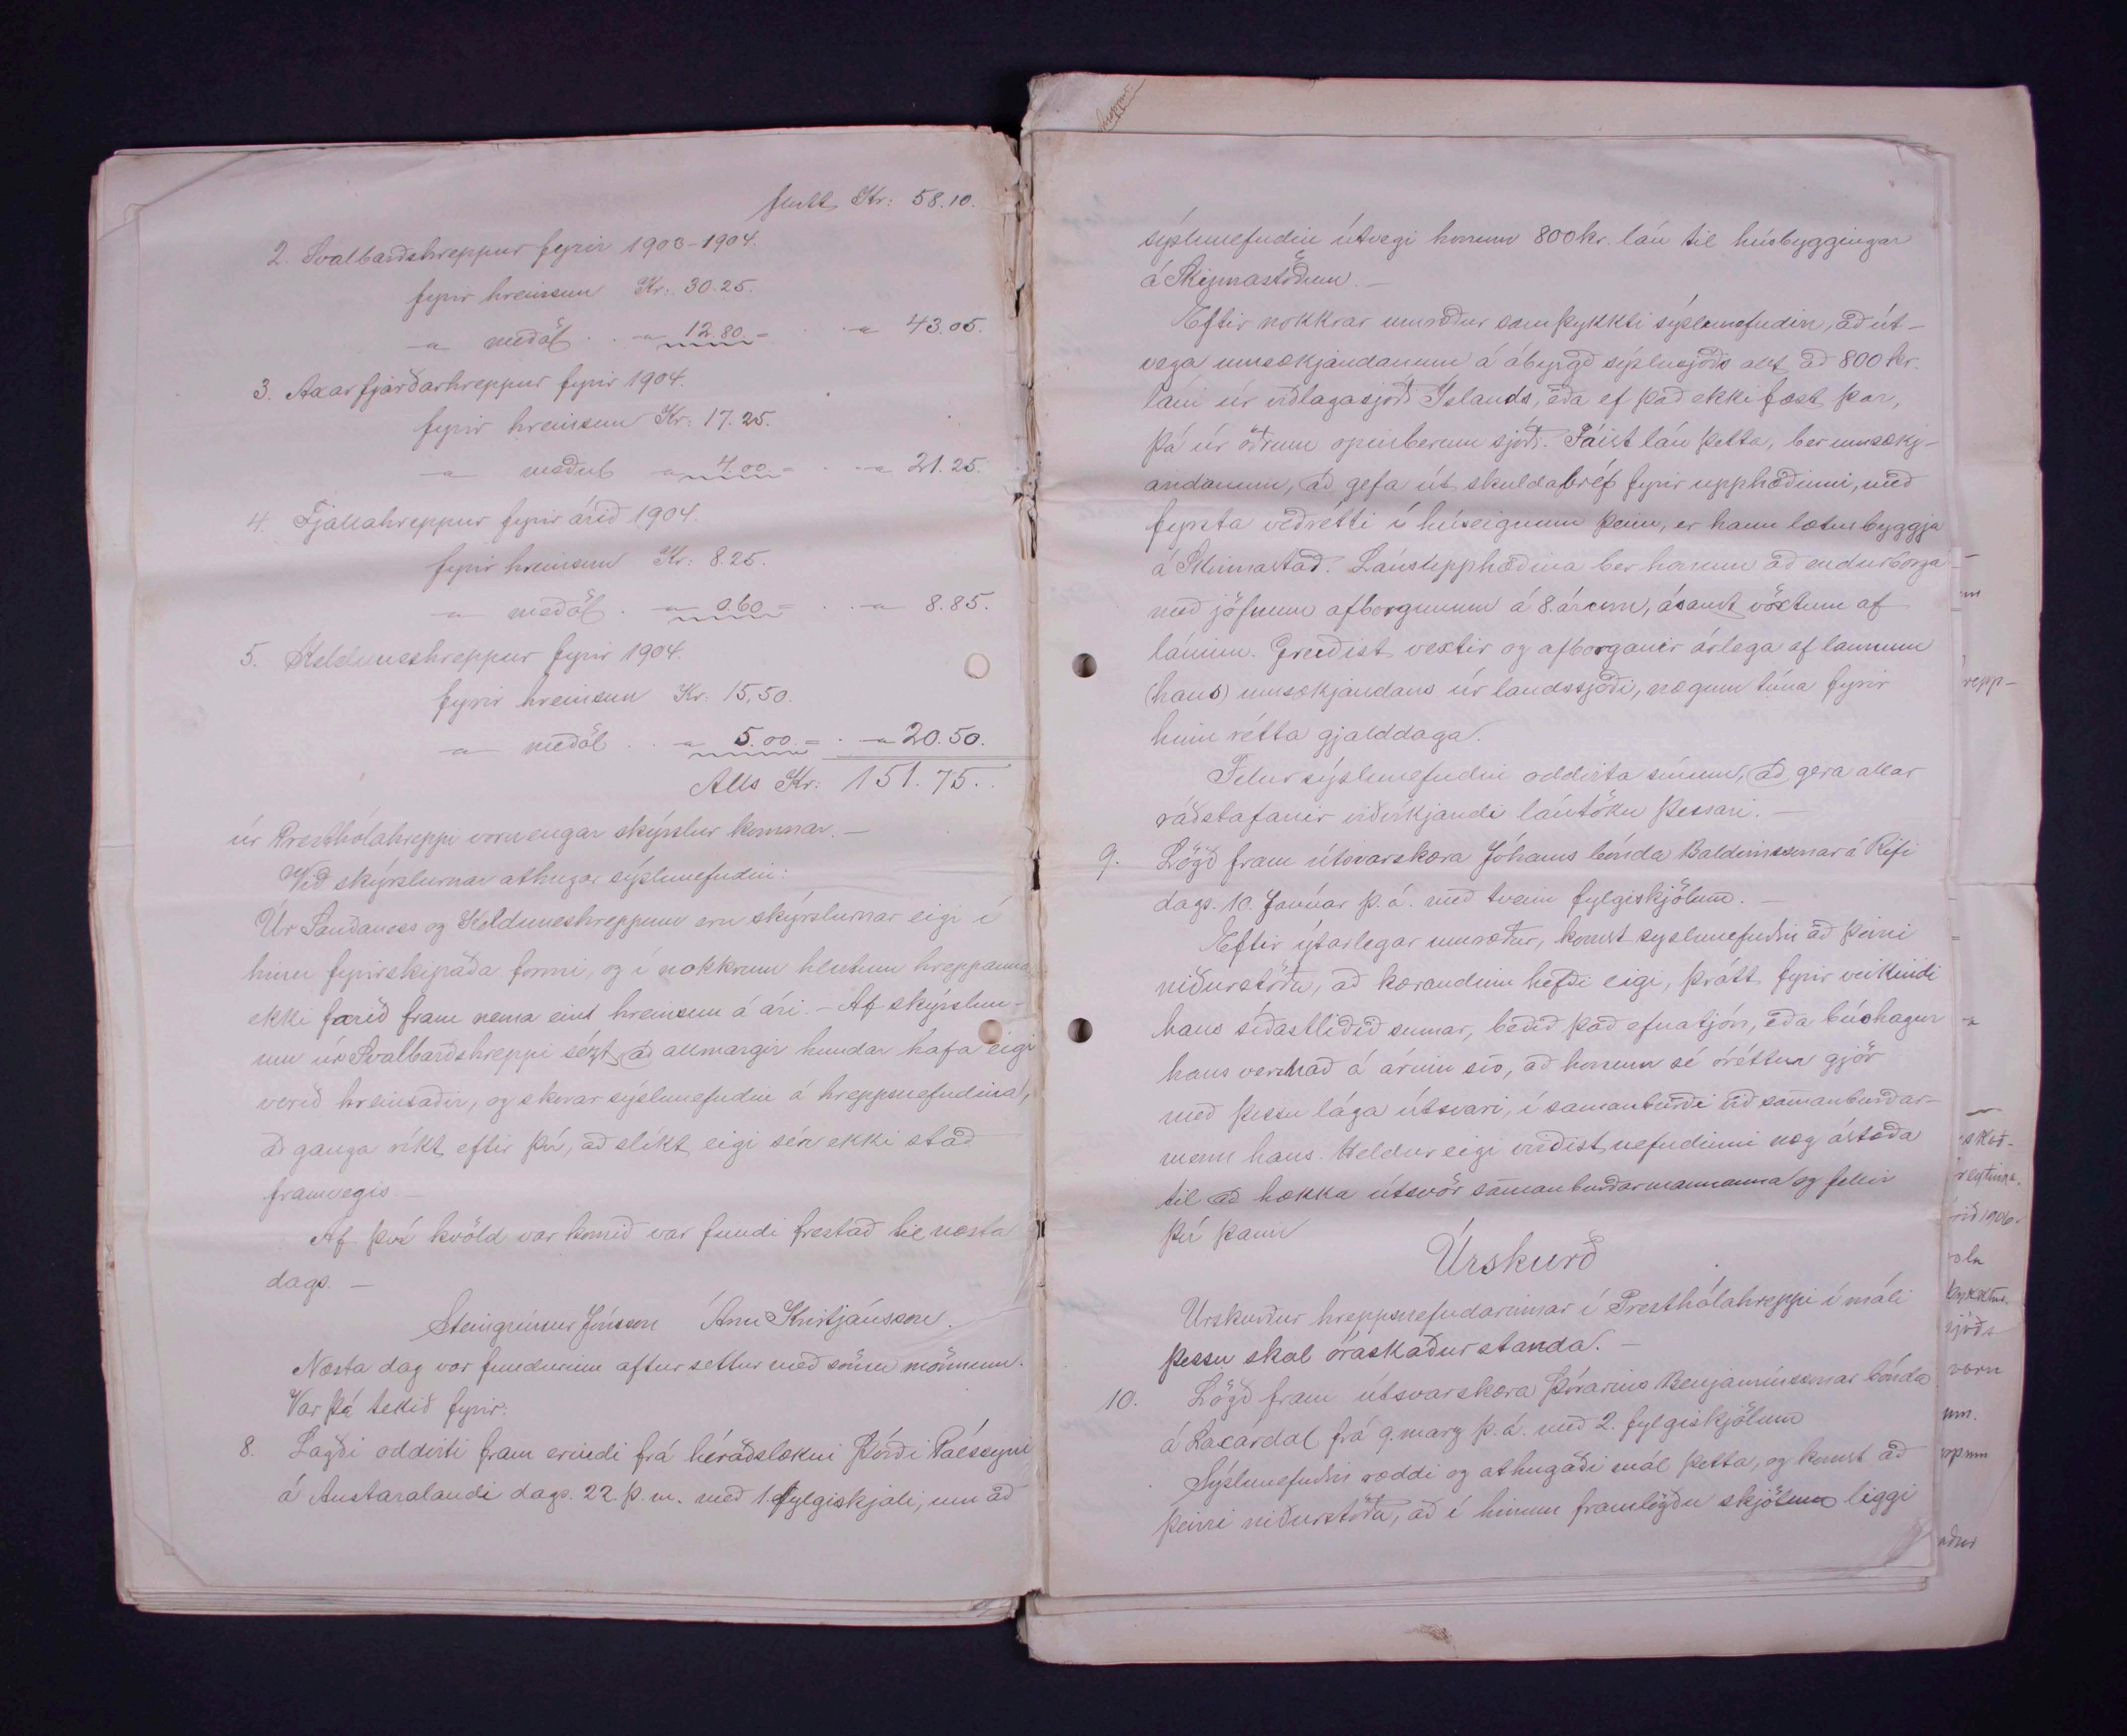 flutt Kr: 58.10.
2. Svalbarðshreppur fyrir 1903-1904.
fyrir hreinsun Kr. 30.25.
-"- meðöl . . -"- 12.80 = . -"- 43.05.
3. Axarfjarðarhreppur fyrir 1904.
fyrir hreinsun Kr: 17.25.
-"- meðul -"- 4.00 = . -"- 21.25.
4. Fjallahreppur fyrir árið 1904.
fyrir hreinsun Kr: 8.25.
-"- meðöl . -"- 0.60 = . . -"- 8.85.
5. Kelduneshreppur fyrir 1904.
fyrir hreinsun Kr: 15,50.
-"- meðöl . . -"- 5.00 = . -"- 20.50.
Alls Kr: 151.75.
úr Presthólahreppi voru engar skýrslur komnar. —
Við skýrslurnar athugar sýslunefndin:
Úr Sauðaness og Kelduneshreppum eru skýrslurnar eigi í
hinu fyrirskipaða formi, og í nokkrum hlutum hreppanna
ekki farið fram nema eint hreinsun á ári. — Af skýrslun-
um úr Svalbarðshreppi sézt, að allmargir hundar hafa eigi
verið hreinsaðir, og skorar sýslunefndin á hreppsnefndina,
að ganga ríkt eftir því, að slíkt eigi sér ekki stað
framvegis. —
Af því kvöld var komið var fundi frestað til næsta
dags. —
Steingrímur Jónsson Árni Kristjánsson.
Næsta dag var fundurinn aftur settur með sömu mönnum.
Var þá tekið fyrir:
8. Lagði oddviti fram erindi frá héraðslækni Þórði Pálssyni
á Austaralandi dags. 22. þ.m. með 1. fylgiskjali, um að
hreppur
sýslunefndin útvegi honum 800 kr. lán til húsbyggingar
á Skinnastöðum. —
Eftir nokkrar umræður samþykkti sýslunefndin, að út-
vega umsækjandanum á ábyrgð sýslusjóðs alt að 800 kr.
láni úr viðlagasjóði Íslands, eða ef það ekki fæst þar,
þá úr öðrum opinberum sjóði. Fáist lán þetta, ber umsækj-
andanum, að gefa út skuldabréf fyrir upphæðinni, með
fyrsta veðrétti í húseignum þeim, er hann lætur byggja
á Skinnastað. Lánsupphæðina ber honum að endurborga
með jöfnum afborgunum á 8 árum, ásamt vöxtum af
láninu. Greiðist vextir og afborganir árlega af launum
(hans) umsækjandans úr landssjóði, nægum tíma fyrir
hinn rétta gjalddaga.
Felur sýslunefndin oddvita sínum, að gera allar
ráðstafanir viðvíkjandi lántöku þessari. —
9. Lögð fram útsvarskæra Jóhanns bónda Baldvinssonar á Rifi
dags. 10. Janúar þ.á. með tveim fylgiskjölum. —
Eftir ýtarlegar umræður, komst sýslunefndin að þeirri
niðurstöðu, að kærandinn hefði eigi, þrátt fyrir veikindi
hans síðastliðið sumar, beðið það efnatjón, eða búshagur
hans versnað á árinu svo, að honum sé óréttur gjör
með þessu lága útsvari, í samanburði við samanburðar-
menn hans. Heldur eigi virðist nefndinni næg ástæða
til að hækka útsvör samanburðarmannanna og fellir
því þann
Úrskurð
Úrskurður hreppsnefndarinnar í Presthólahreppi í máli
þessu skal óraskaður standa. —
10. Lögð fram útsvarskæra Þórarins Benjamínssonar bónda
á Laxárdal frá 9. marz þ.á. með 2. fylgiskjölum
Sýslunefndin ræddi og athugaði mál þetta, og komst að
þeirri niðurstöðu, að í hinum framlögðu skjölum liggi
repp-
1906.
sjóðs
voru